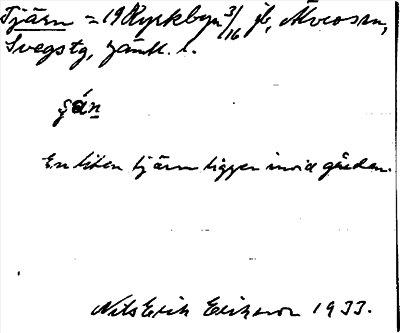 Tjärn = 19 Kyrkbyn 3/16 jb, Älvros sn,
Svegs tg, Jämtl. l.
ʂán
En liten tjärn ligger invid gården.
Nils Erik Eriksson 1933.